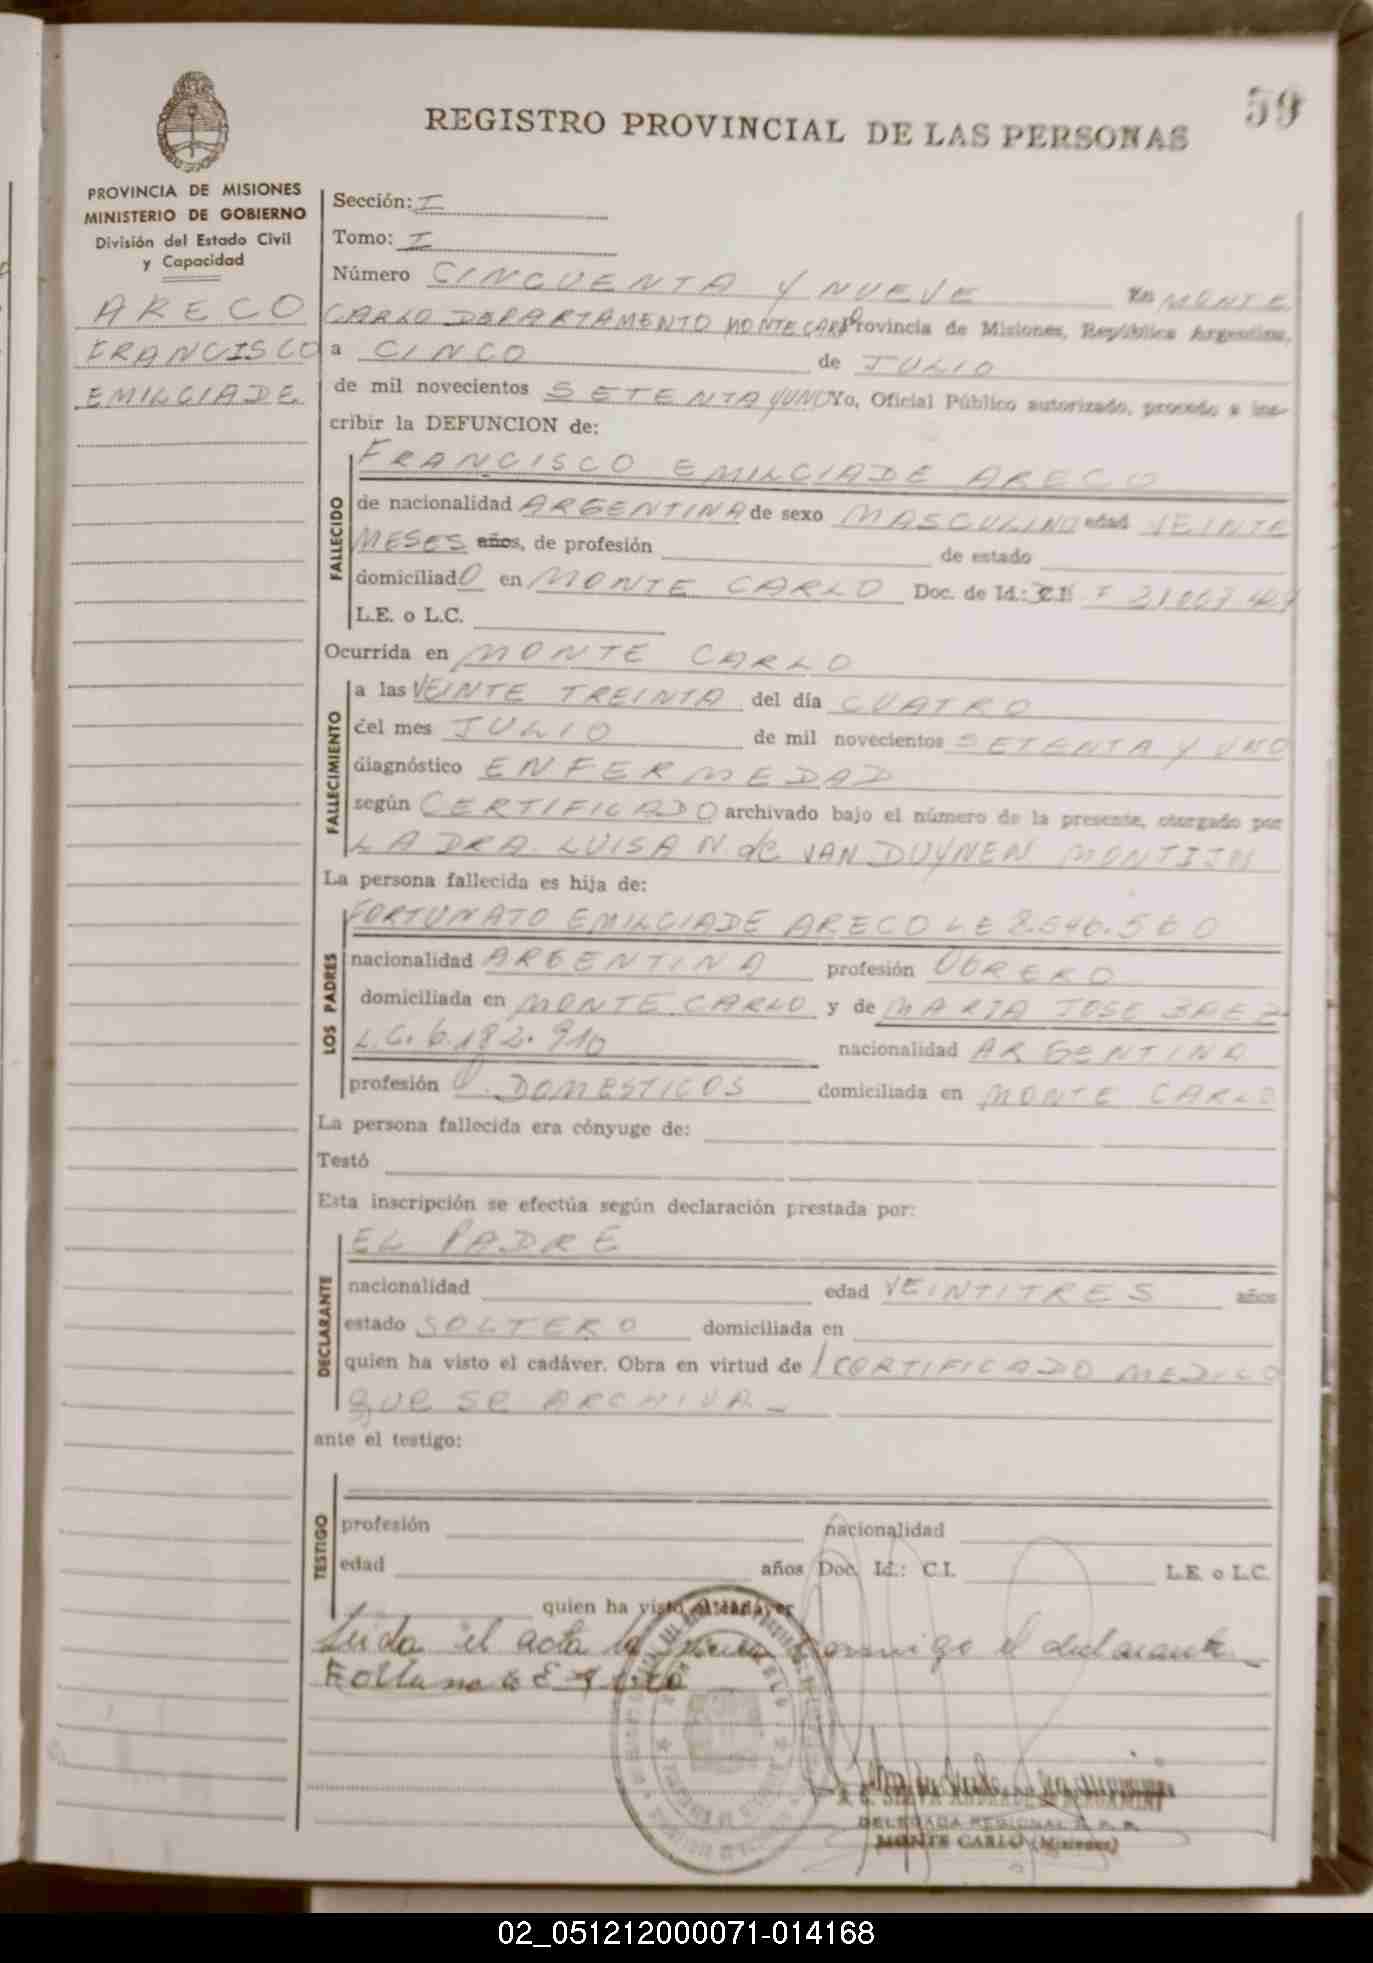 59
REGISTRO PROVINCIAL DE LAS PERSONAS
PROVINCIA DE MISIONES
MINISTERIO DE GOBIERNO
División del Estado Civil
y Capacidad
ARECO
FRANCISCO
EMILCIADE
Sección: I
Tomo: I
Número CINCUENTA Y NUEVE En MONTE
CARLO DEPARTAMENTO MONTE CARLO Provincia de Misiones, República Argentina,
a CINCO de JULIO
de mil novecientos SETENTA Y UNO Yo, Oficial Público autorizado, procedo a ins-
cribir la DEFUNCION de:
FALLECIDO
FRANCISCO EMILCIADE ARECO
de nacionalidad ARGENTINA de sexo MASCULINO edad VEINTE
MESES años, de profesión de estado
domiciliado en MONTE CARLO Doc. de Id.:
L.E. o L.C.
Ocurrida en MONTE CARLO
FALLECIMIENTO
a las VEINTE TREINTA del día CUATRO
del mes JULIO de mil novecientos SETENTA Y UNO
diagnóstico ENFERMEDAD
según CERTIFICADO archivado bajo el número de la presente, otorgado por
LA DRA. LUISA N de VAN DUYNEN MONTIJN
La persona fallecida es hija de:
LOS PADRES
FORTUNATO EMILCIADE ARECO LE 8.546.560
nacionalidad ARGENTINA profesión OBRERO
domiciliada en MONTE CARLO y de MARIA JOSE BAEZ
L.C. 6.182.910 nacionalidad ARGENTINA
profesión Q. DOMESTICOS domiciliada en MONTE CARLO
La persona fallecida era cónyuge de:
Testó
Esta inscripción se efectúa según declaración prestada por:
DECLARANTE
EL PADRE
nacionalidad edad VEINTITRES años
estado SOLTERO domiciliada en
quien ha visto el cadáver. Obra en virtud de CERTIFICADO MEDICO
que se ARCHIVA
ante el testigo:
TESTIGO
profesión nacionalidad
edad años Doc. Id.: C.I. L.E. o L.C.
quien ha visto el cadáver
Leida el acta la firma conmigo el declarante
DELEGADA REGIONAL R. P. P.
MONTE CARLO (Misiones)
02_051212000071-014168